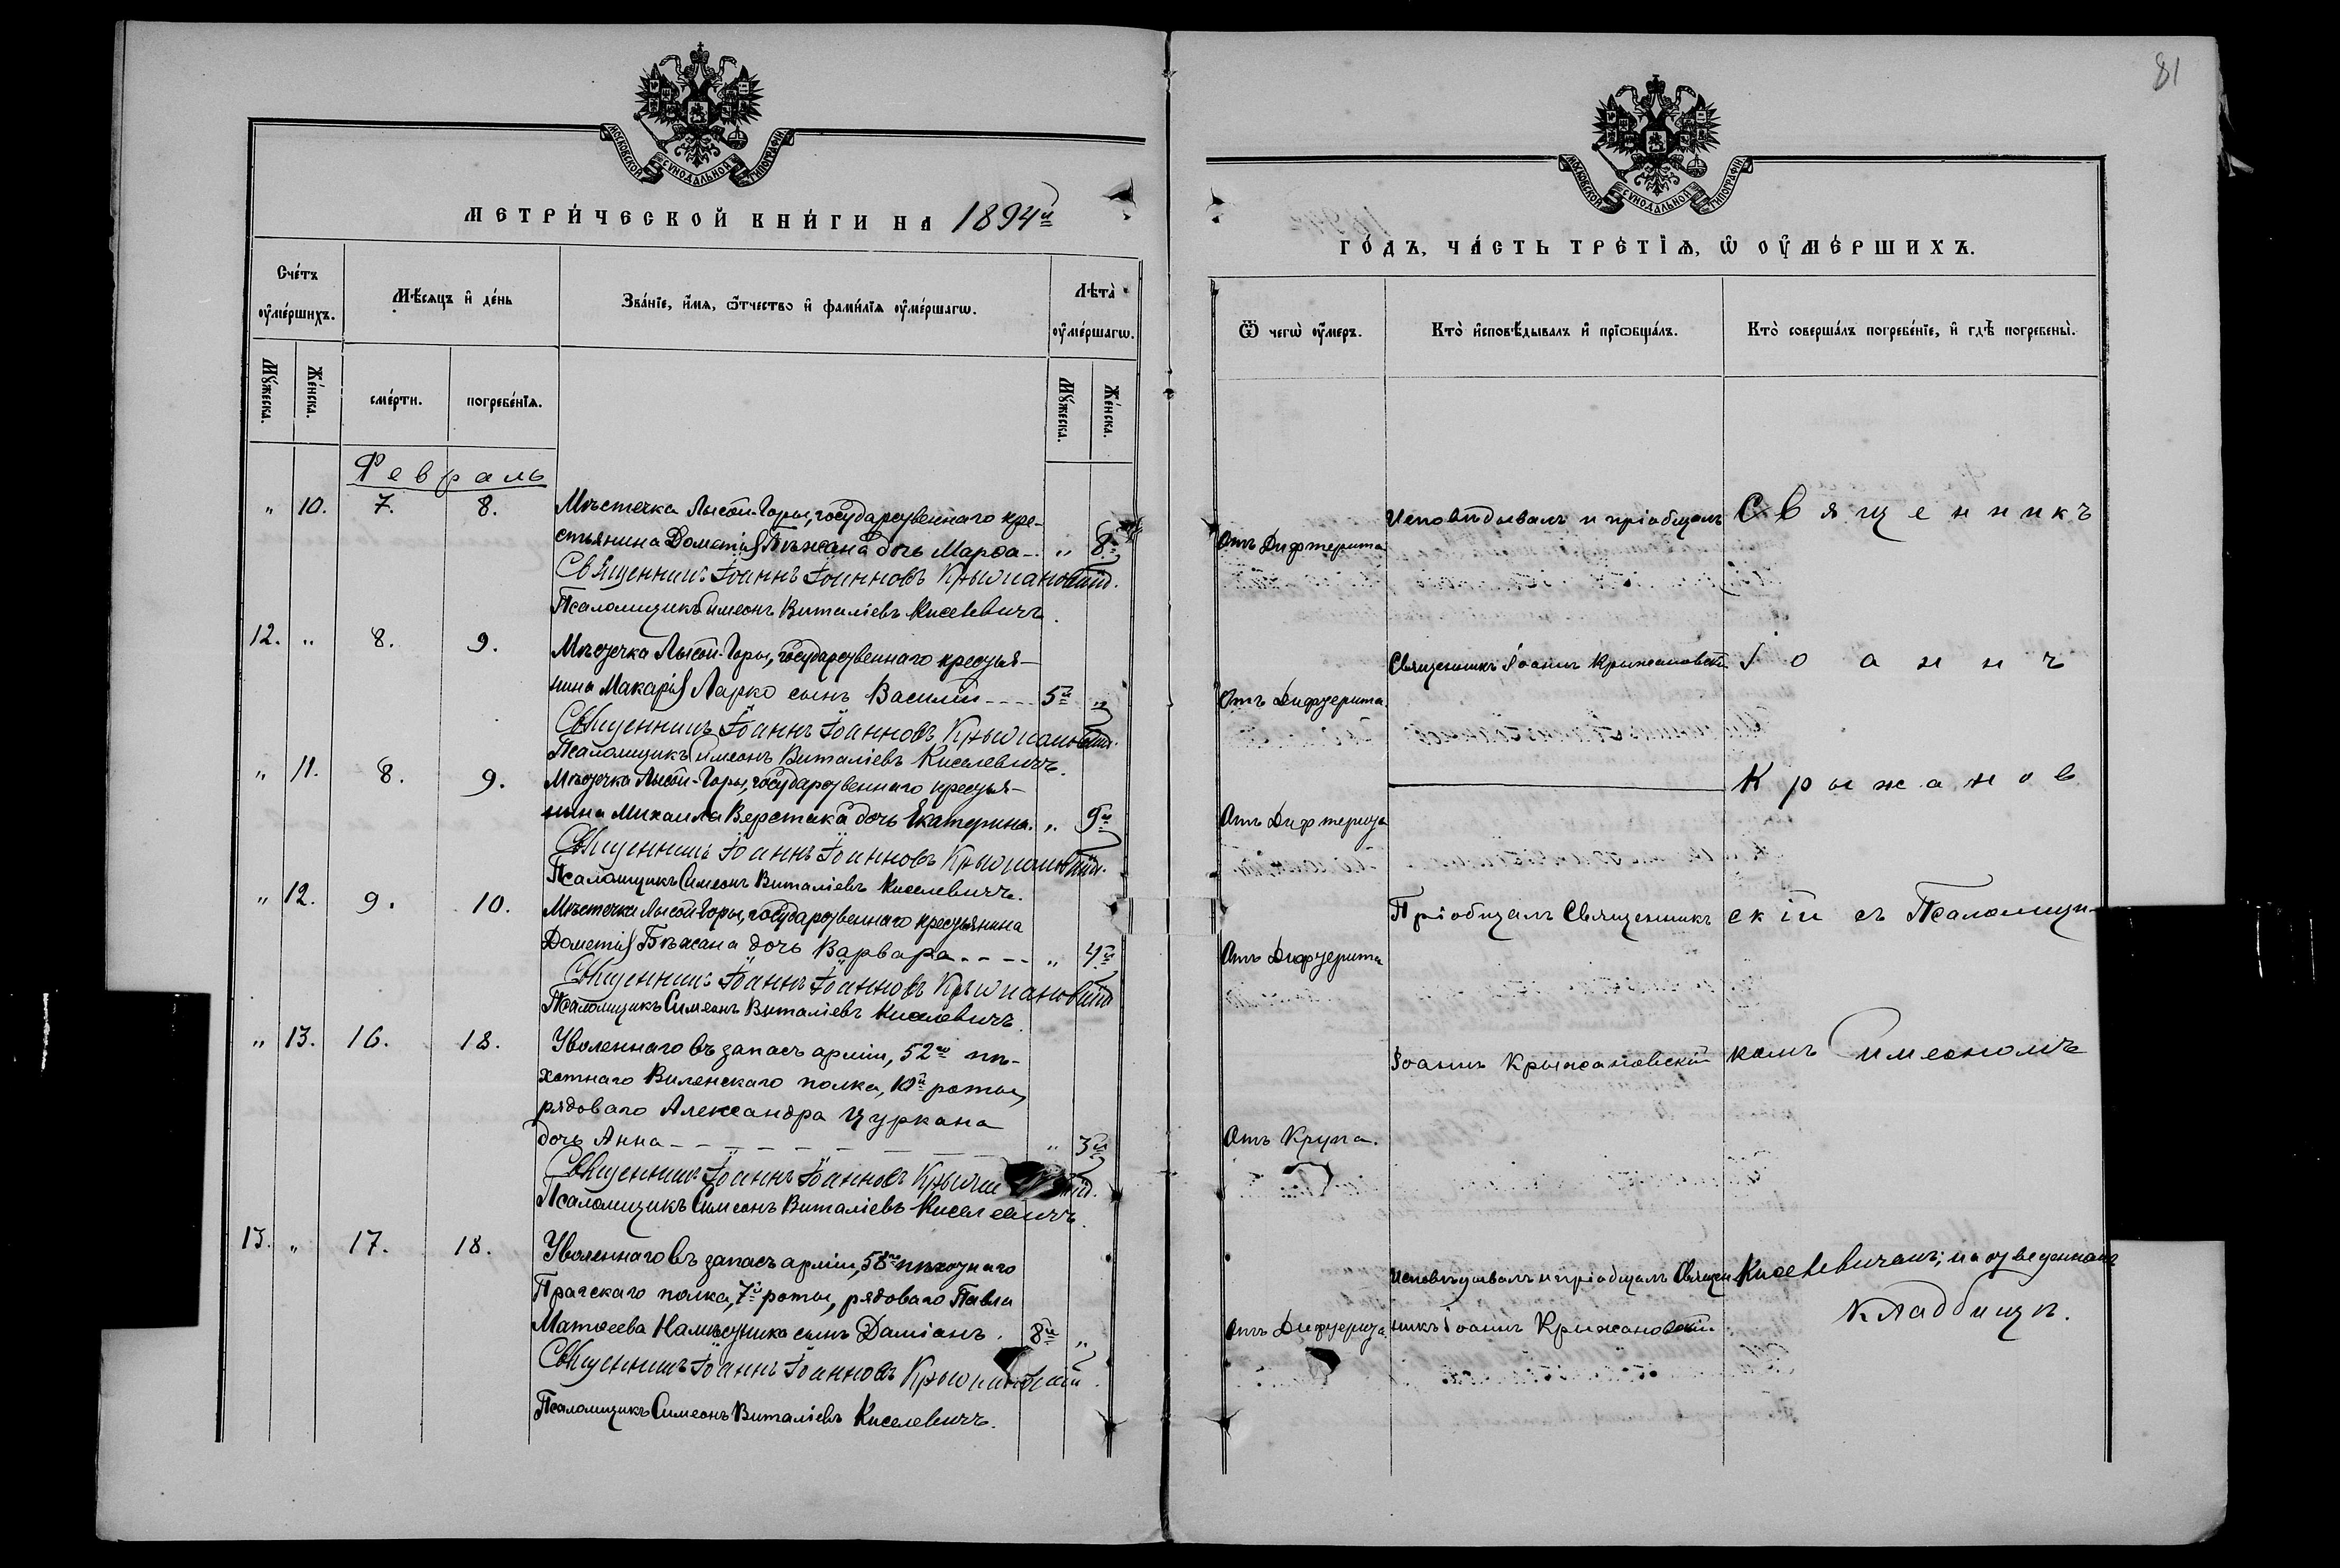 МОСКОВСКОЙ СѴНОДАЛЬНОЙ ТИПОГРАФІИ
МЕТРИ́ЧЕСКОЙ КНИ́ГИ НА 1894й
Сче́тъ
ᲂу҆ме́ршихъ.
Мѣ́сяцъ и҆ де́нь
Зва́нїе, и҆́мѧ, ѻ҆́тчество и҆ фамилїѧ ᲂу҆ме́ршагѡ.
Лѣта̀
ᲂу҆ме́ршагѡ.
Мꙋ́жеска.
Же́нска.
сме́рти.
погребе́нїѧ.
Мꙋ́жеска.
Же́нска.
Февраль
" 10. 7. 8. Мѣстечка Лысой-Горы, государственнаго кре-
стьянина Дометія Бѣжана дочь Марѳа - . " 8й
Священникъ Іоаннъ Іоанновъ Крыжановскій.
Псаломщикъ Симеонъ Виталіевъ Киселевичъ.
12. " 8. 9. Мѣстечка Лысой-Горы, государственнаго крестья-
нина Макарія Ларко сынъ Василій - - - - 5й "
Священникъ Іоаннъ Іоанновъ Крыжановскій.
Псаломщикъ Симеонъ Виталіевъ Киселевичъ.
" 11. 8. 9. Мѣстечка Лысой-Горы, государственнаго крестья-
нина Михаила Верстака дочь Екатерина. " 9й
Священникъ Іоаннъ Іоанновъ Крыжановскій.
Псаломщикъ Симеонъ Виталіевъ Киселевичъ.
" 12. 9. 10. Мѣстечка Лысой-Горы, государственнаго крестьянина
Дометія Бѣжана дочь Варвара - - - - " 4й
Священникъ Іоаннъ Іоанновъ Крыжановскій
Псаломщикъ Симеонъ Виталіевъ Киселевичъ.
" 13. 16. 18. Уволеннаго въ запасъ арміи, 52го пѣ-
хотнаго Виленскаго полка, 10й роты,
рядоваго Александра Цуркана
дочь Анна - - - - - - - - " 3й
Священникъ Іоаннъ Іоанновъ
Псаломщикъ Симеонъ Виталіевъ Киселевичъ.
13. " 17. 18. Уволеннаго въ запасъ арміи, 58го пѣхотнаго
Прагскаго полка, 7й роты, рядоваго Павла
Матѳеева Намѣстника сынъ Даміанъ. 8й "
Священникъ Іоаннъ Іоанновъ Крыжановскій.
Псаломщикъ Симеонъ Виталіевъ Киселевичъ.
81
МОСКОВСКОЙ СѴНОДАЛЬНОЙ ТИПОГРАФІИ
ГО́ДЪ, ЧА́СТЬ ТРЕ́ТЇѦ, Ѡ҆ ОУ҆МЕ́РШИХЪ.
Ѿ чегѡ̀ ᲂу҆́меръ.
Кто̀ и҆сповѣ́дывалъ и҆ прїѻбща́лъ.
Кто̀ соверша́лъ погребе́нїе, и҆ гдѣ̀ погребены̀.
Исповѣдывалъ и пріобщалъ Священникъ
Отъ Дифтерита
Священникъ Іоаннъ Крыжановскій Іоаннъ
Отъ Дифтерита.
Крыжанов
Отъ Дифтерита
Пріобщалъ Священникъ скій съ Псаломщи-
Отъ Дифтерита
Іоаннъ Крыжановскій комъ Симеономъ
Отъ Крупа.
Исповѣдывалъ и пріобщалъ Священ Киселевичемъ; на отведенномъ
Отъ Дифтерита никъ Іоаннъ Крыжановскій кладбищѣ.